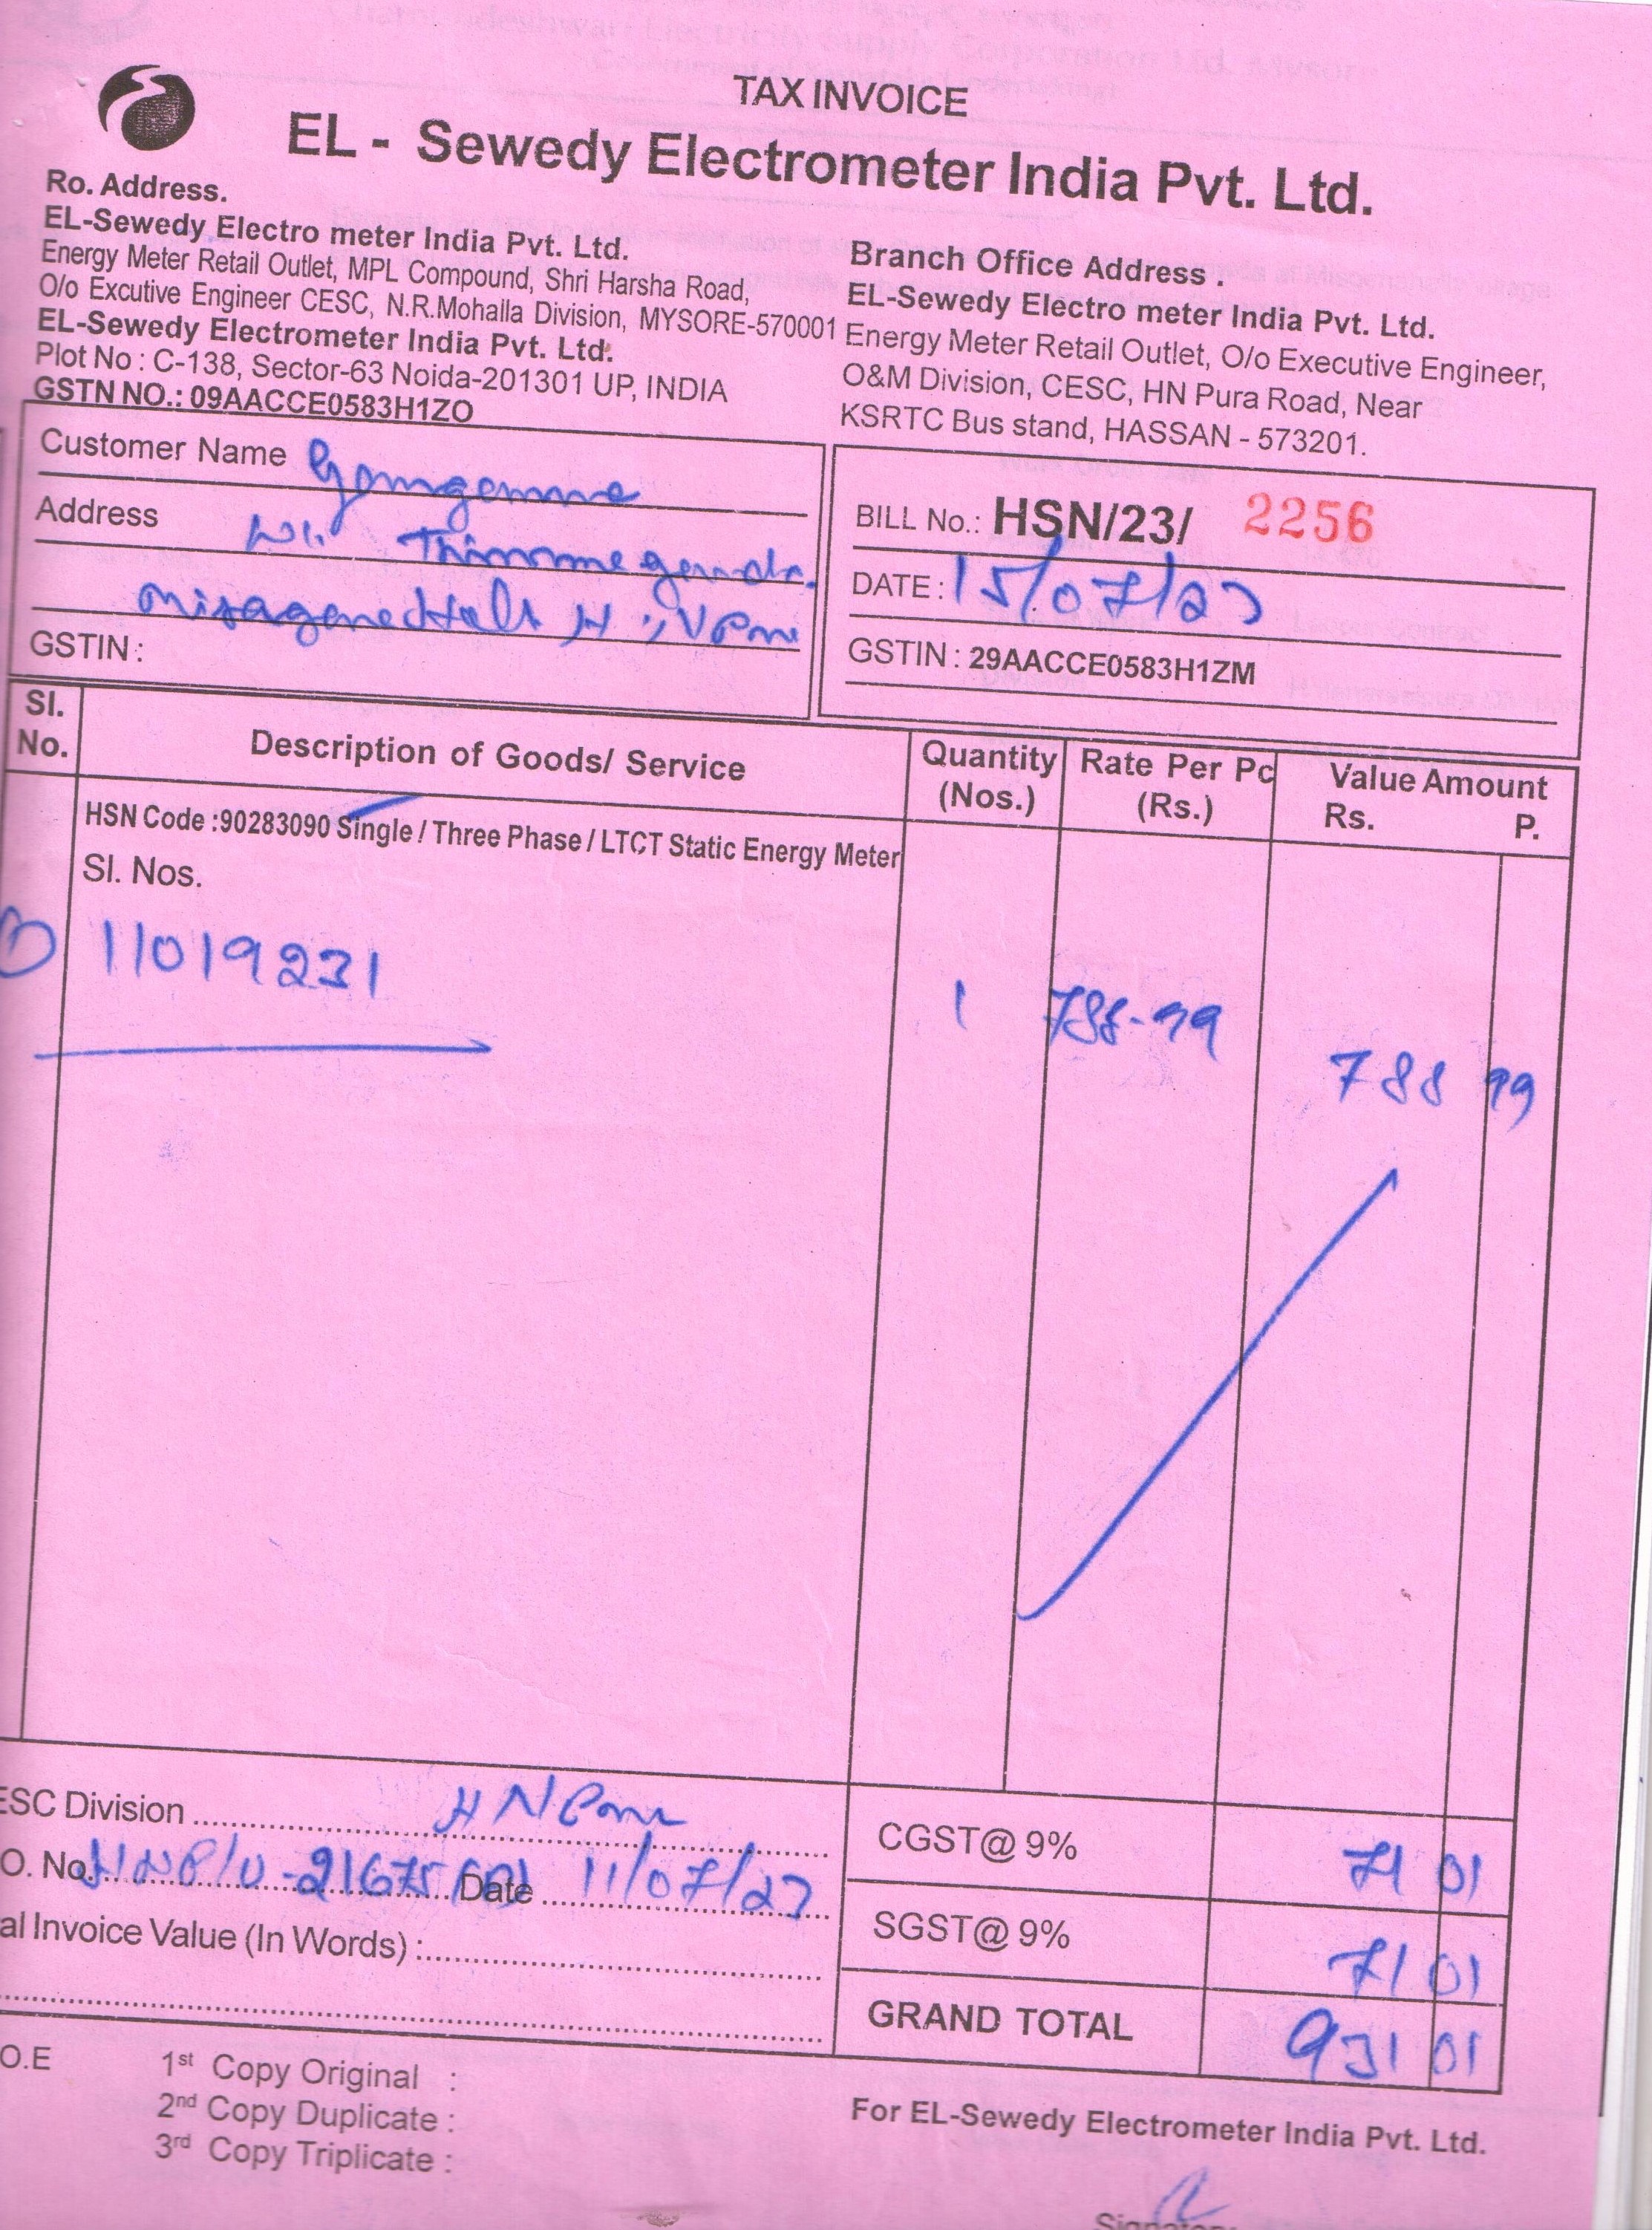 TAX INVOICE
EL - Sewedy Electrometer India Pvt. Ltd.
Ro. Address.
EL-Sewedy Electro meter India Pvt. Ltd.
Energy Meter Retail Outlet, MPL Compound, Shri Harsha Road,
O/o Excutive Engineer CESC, N.R.Mohalla Division, MYSORE-570001
EL-Sewedy Electrometer India Pvt. Ltd.
Plot No : C-138, Sector-63 Noida-201301 UP, INDIA
GSTN NO.: 09AACCE0583H1ZO
Branch Office Address .
EL-Sewedy Electro meter India Pvt. Ltd.
Energy Meter Retail Outlet, O/o Executive Engineer,
O&M Division, CESC, HN Pura Road, Near
KSRTC Bus stand, HASSAN - 573201.
Customer Name
Address
GSTIN :
BILL No.: HSN/23/ 2256
DATE : 15/07/23
GSTIN : 29AACCE0583H1ZM
Sl. No. Description of Goods/ Service Quantity (Nos.) Rate Per Pc (Rs.) Value Amount Rs. P.
HSN Code :90283090 Single / Three Phase / LTCT Static Energy Meter
Sl. Nos.
1 11019231 1 788-99 788 99
ESC Division
O. No. Date 11/07/23
al Invoice Value (In Words) :
CGST@ 9% 71 01
SGST@ 9% 71 01
GRAND TOTAL 931 01
O.E
1st Copy Original :
2nd Copy Duplicate :
3rd Copy Triplicate :
For EL-Sewedy Electrometer India Pvt. Ltd.